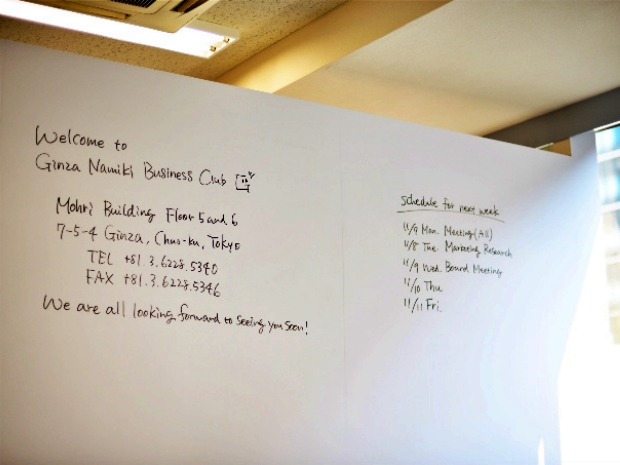 Welcome to
Ginza Namiki Business Club
Mohri Building Floor 5 and 6
7-5-4 Ginza, Chuo-ku, Tokyo
TEL +81.3.6228.5340
FAX +81.3.6228.5346
We are all looking forward to seeing you soon!
Schedule for next week
11/9 Mon. Meeting (All)
11/8 Tue. Marketing Research
11/9 Wed. Board Meeting
11/10 Thu
11/11 Fri.